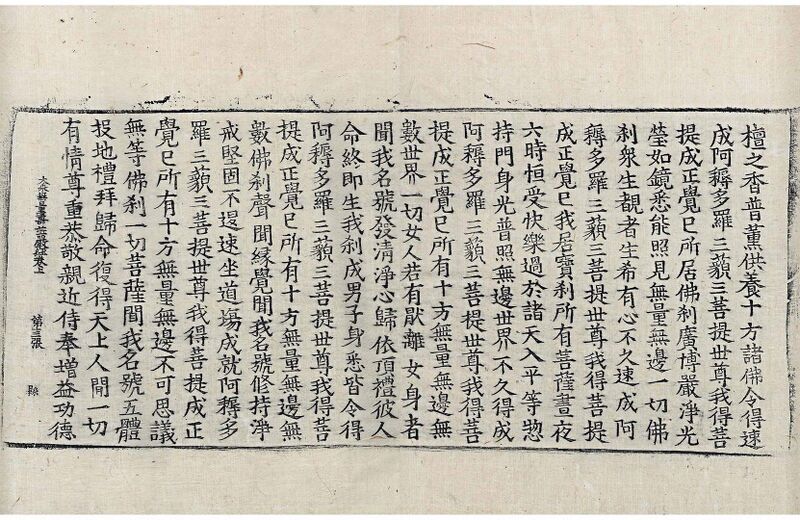 檀之香普薰供養十方諸佛令得速
成阿耨多羅三藐三菩提世尊我得菩
提成正覺已所居佛刹廣博嚴淨光
瑩如鏡悉能照見無量無邊一切佛
刹衆生覩者生希有心不久速成阿
耨多羅三藐三菩提世尊我得菩提
成正覺已我居寶刹所有菩薩晝夜
六時恒受快樂過於諸天入平等惣
持門身光普照無邊世界不久得成
阿耨多羅三藐三菩提世尊我得菩
提成正覺已所有十方無量無邊無
數世界一切女人若有猒離女身者
聞我名號發清淨心歸依頂禮彼人
命終即生我刹成男子身悉皆令得
阿耨多羅三藐三菩提世尊我得菩
提成正覺已所有十方無量無邊無
數佛刹聲聞緣覺聞我名號修持淨
戒堅固不退速坐道場成就阿耨多
羅三藐三菩提世尊我得菩提成正
覺已所有十方無量無邊不可思議
無等佛刹一切菩薩聞我名號五體
投地禮拜歸命復得天上人間一切
有情尊重恭敬親近侍奉增益功德
第三張